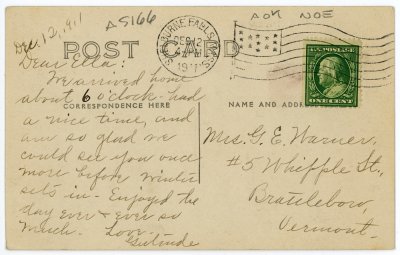 Dec. 12, 1911
A5166
AOK NOE
SHELBURNE FALLS, MASS.
DEC 12
1911
POST CARD
U.S. POSTAGE
ONE CENT
CORRESPONDENCE HERE
NAME AND ADDRESS
Dear Ella:
We arrived home
about 6 o'clock - had
a nice time, and
am so glad we
could see you once
more before winter
sets in. Enjoyed the
day ever & ever so
much. Love -
Gertrude
Mrs. G. E. Warner,
#5 Whipple St.,
Brattleboro,
Vermont.